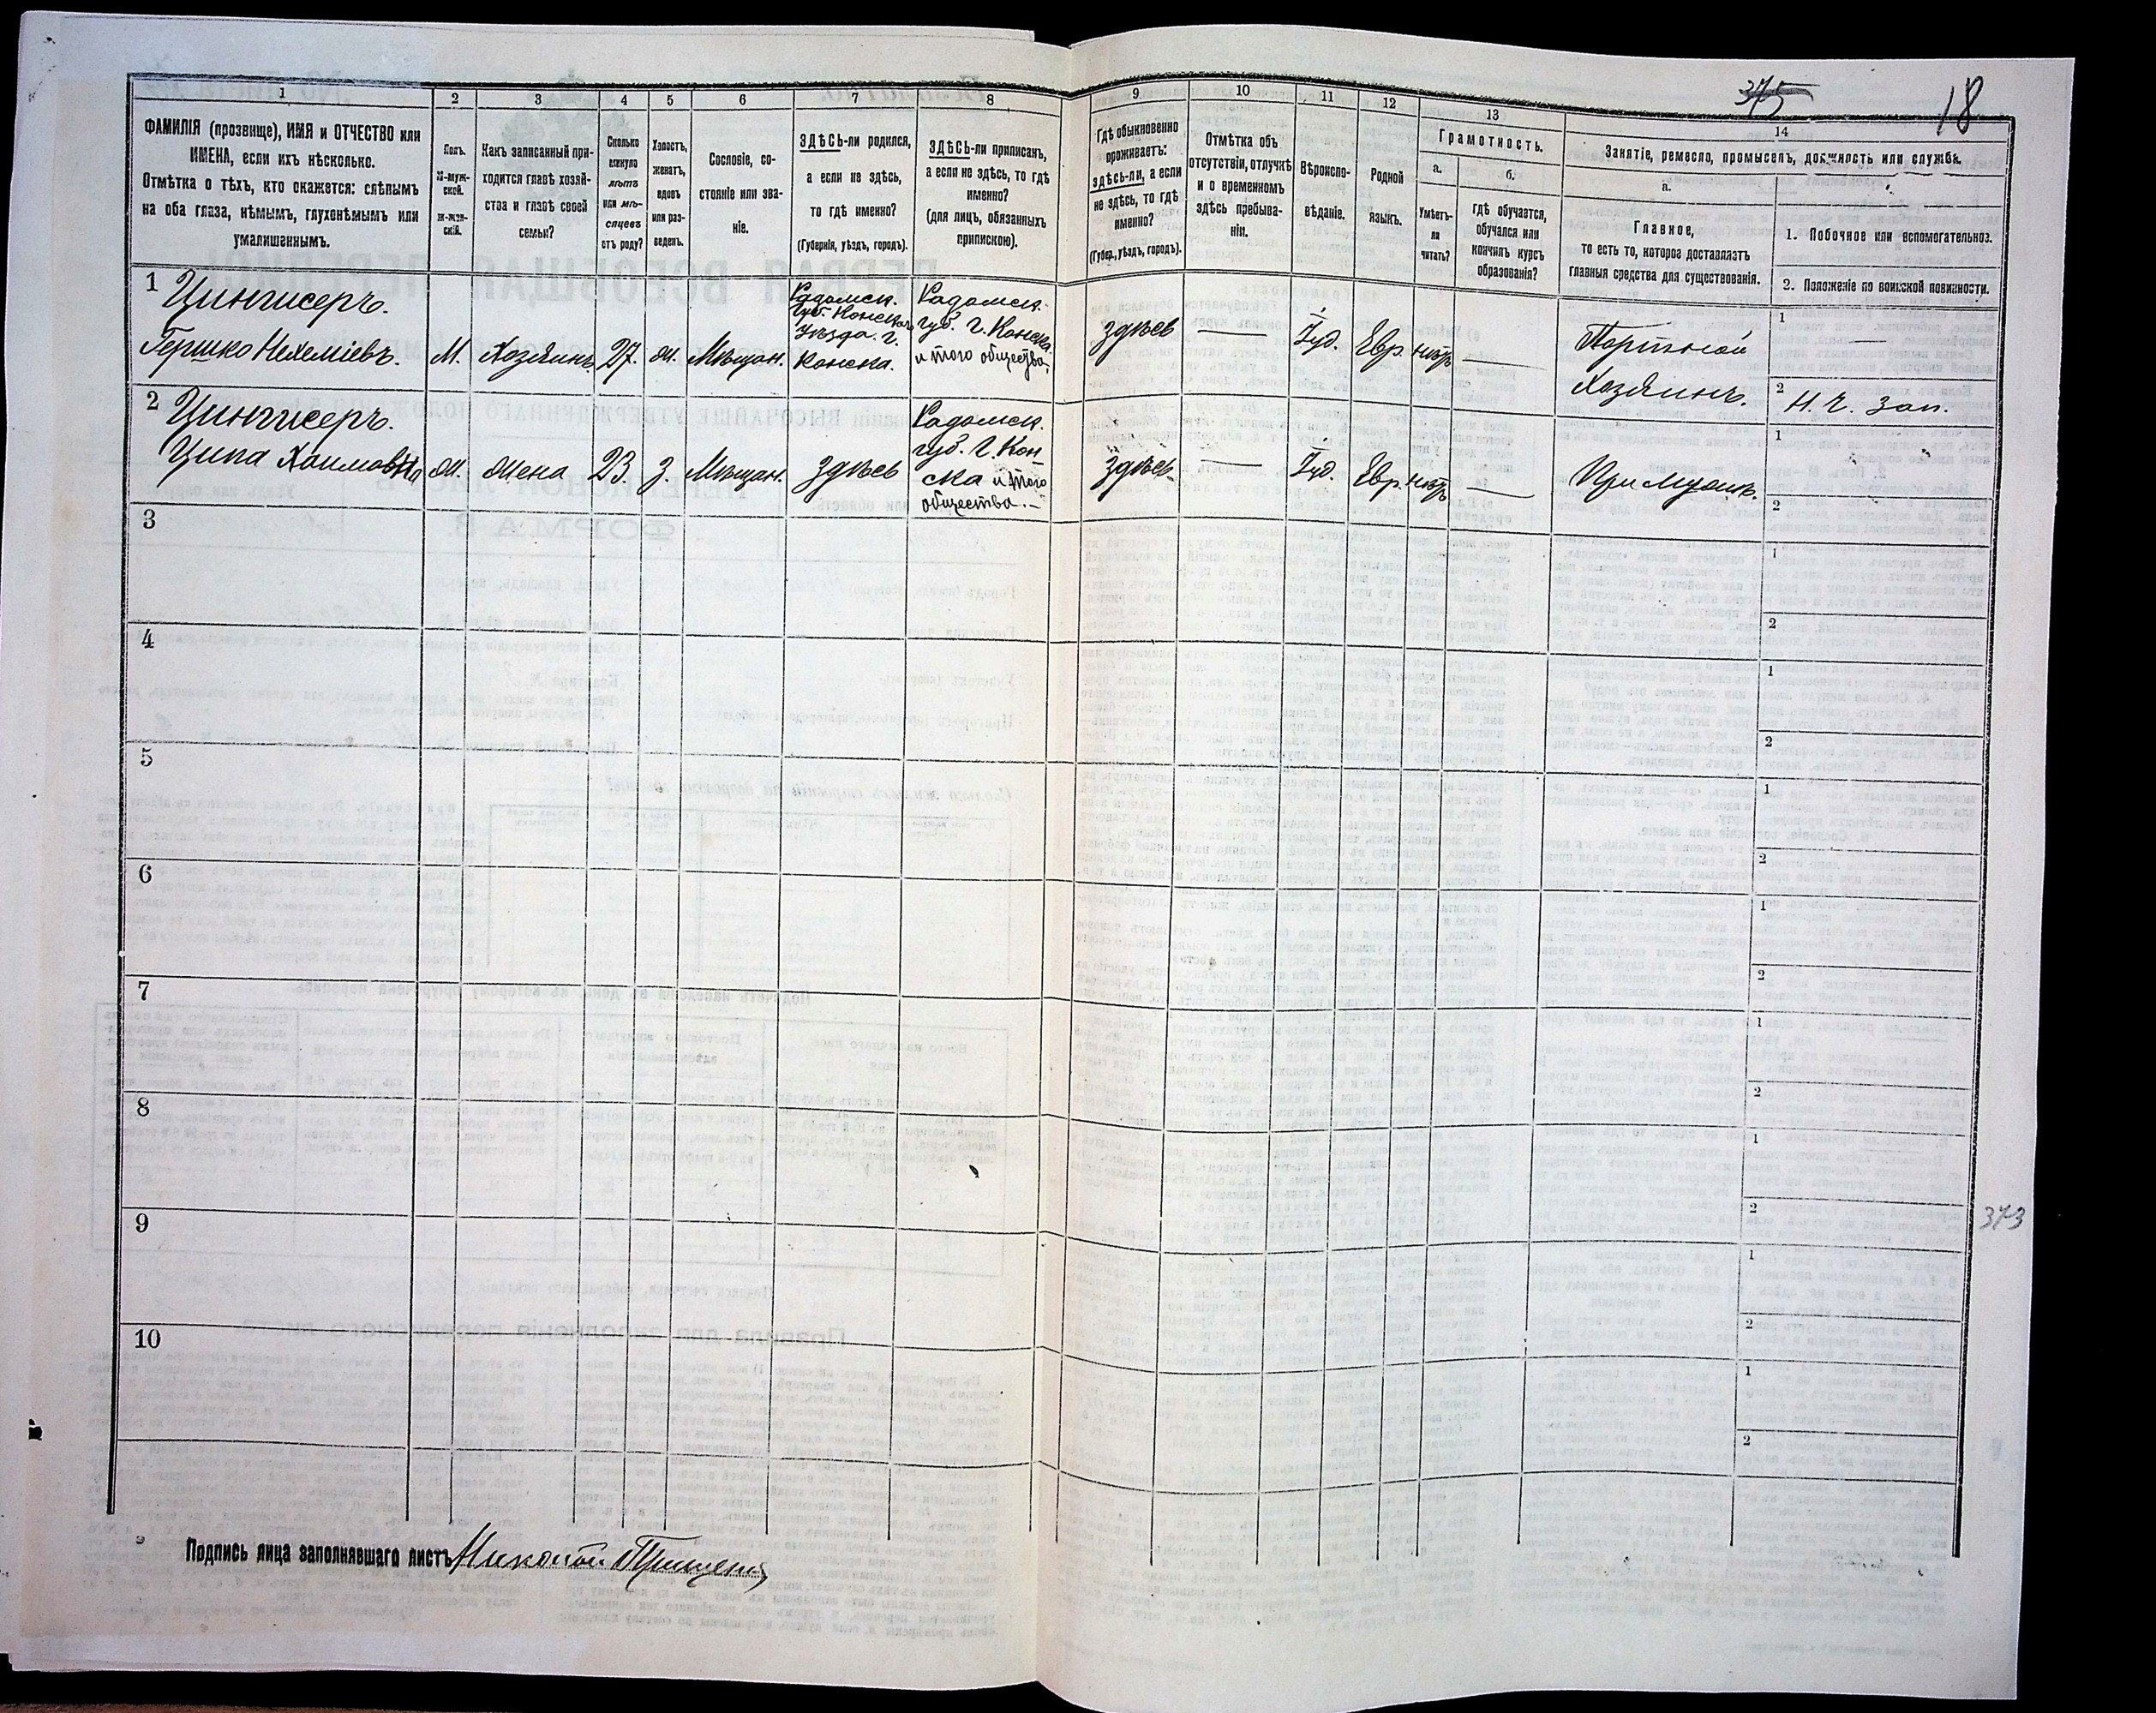 375 18
1 2 3 4 5 6 7 8 9 10 11 12 13 14
ФАМИЛІЯ (прозвище), ИМЯ и ОТЧЕСТВО или
ИМЕНА, если ихъ нѣсколько.
Отмѣтка о тѣхъ, кто окажется: слѣпымъ
на оба глаза, нѣмымъ, глухонѣмымъ или
умалишеннымъ.
Полъ.
М-муж-
ской.
ж-жен-
скій.
Какъ записанный при-
ходится главѣ хозяй-
ства и главѣ своей
семьи?
Сколько
минуло
лѣтъ
или мѣ-
сяцевъ
отъ роду?
Холостъ,
женатъ,
вдовъ
или раз-
веденъ.
Сословіе, со-
стояніе или зва-
ніе.
ЗДѢСЬ-ли родился,
а если не здѣсь,
то гдѣ именно?
(Губернія, уѣздъ, городъ).
ЗДѢСЬ-ли приписанъ,
а если не здѣсь, то гдѣ
именно?
(для лицъ, обязанныхъ
припискою).
Гдѣ обыкновенно
проживаетъ:
здѣсь-ли, а если
не здѣсь, то гдѣ
именно?
(Губер., уѣздъ, городъ).
Отмѣтка объ
отсутствіи, отлучкѣ
и о временномъ
здѣсь пребыва-
ніи.
Вѣроиспо-
вѣданіе.
Родной
языкъ.
Грамотность.
а.
Умѣетъ-
ли
читать?
б.
гдѣ обучается,
обучался или
кончилъ курсъ
образованія?
Занятіе, ремесло, промыселъ, должность или служба.
а.
Главное,
то есть то, которое доставляетъ
главныя средства для существованія.
1. Побочное или вспомогательное.
2. Положеніе по воинской повинности.
1 Цингисеръ.
Гершко Нехеміевъ.
М.
Хозяинъ
27.
ж.
Мѣщан.
Радомск.
губ. Конскаго
Уѣзда. г.
Конска.
Радомск.
губ. г. Конска.
и того общества.
здѣсь
—
Іуд.
Евр.
нѣтъ
—
Портной
Хозяинъ.
1 —
2 Н. Ч. Зап.
2 Цингисеръ.
Ципа Хаимовна
ж.
жена
23.
з.
Мѣщан.
здѣсь
Радомск.
губ. г. Кон-
ска и того
общества.
здѣсь
—
Іуд.
Евр.
нѣтъ
—
При мужѣ.
1
2
3
1
2
4
1
2
5
1
2
6
1
2
7
1
2
8
1
2
9
1
2
10
1
2
373
Подпись лица заполнявшаго листъ